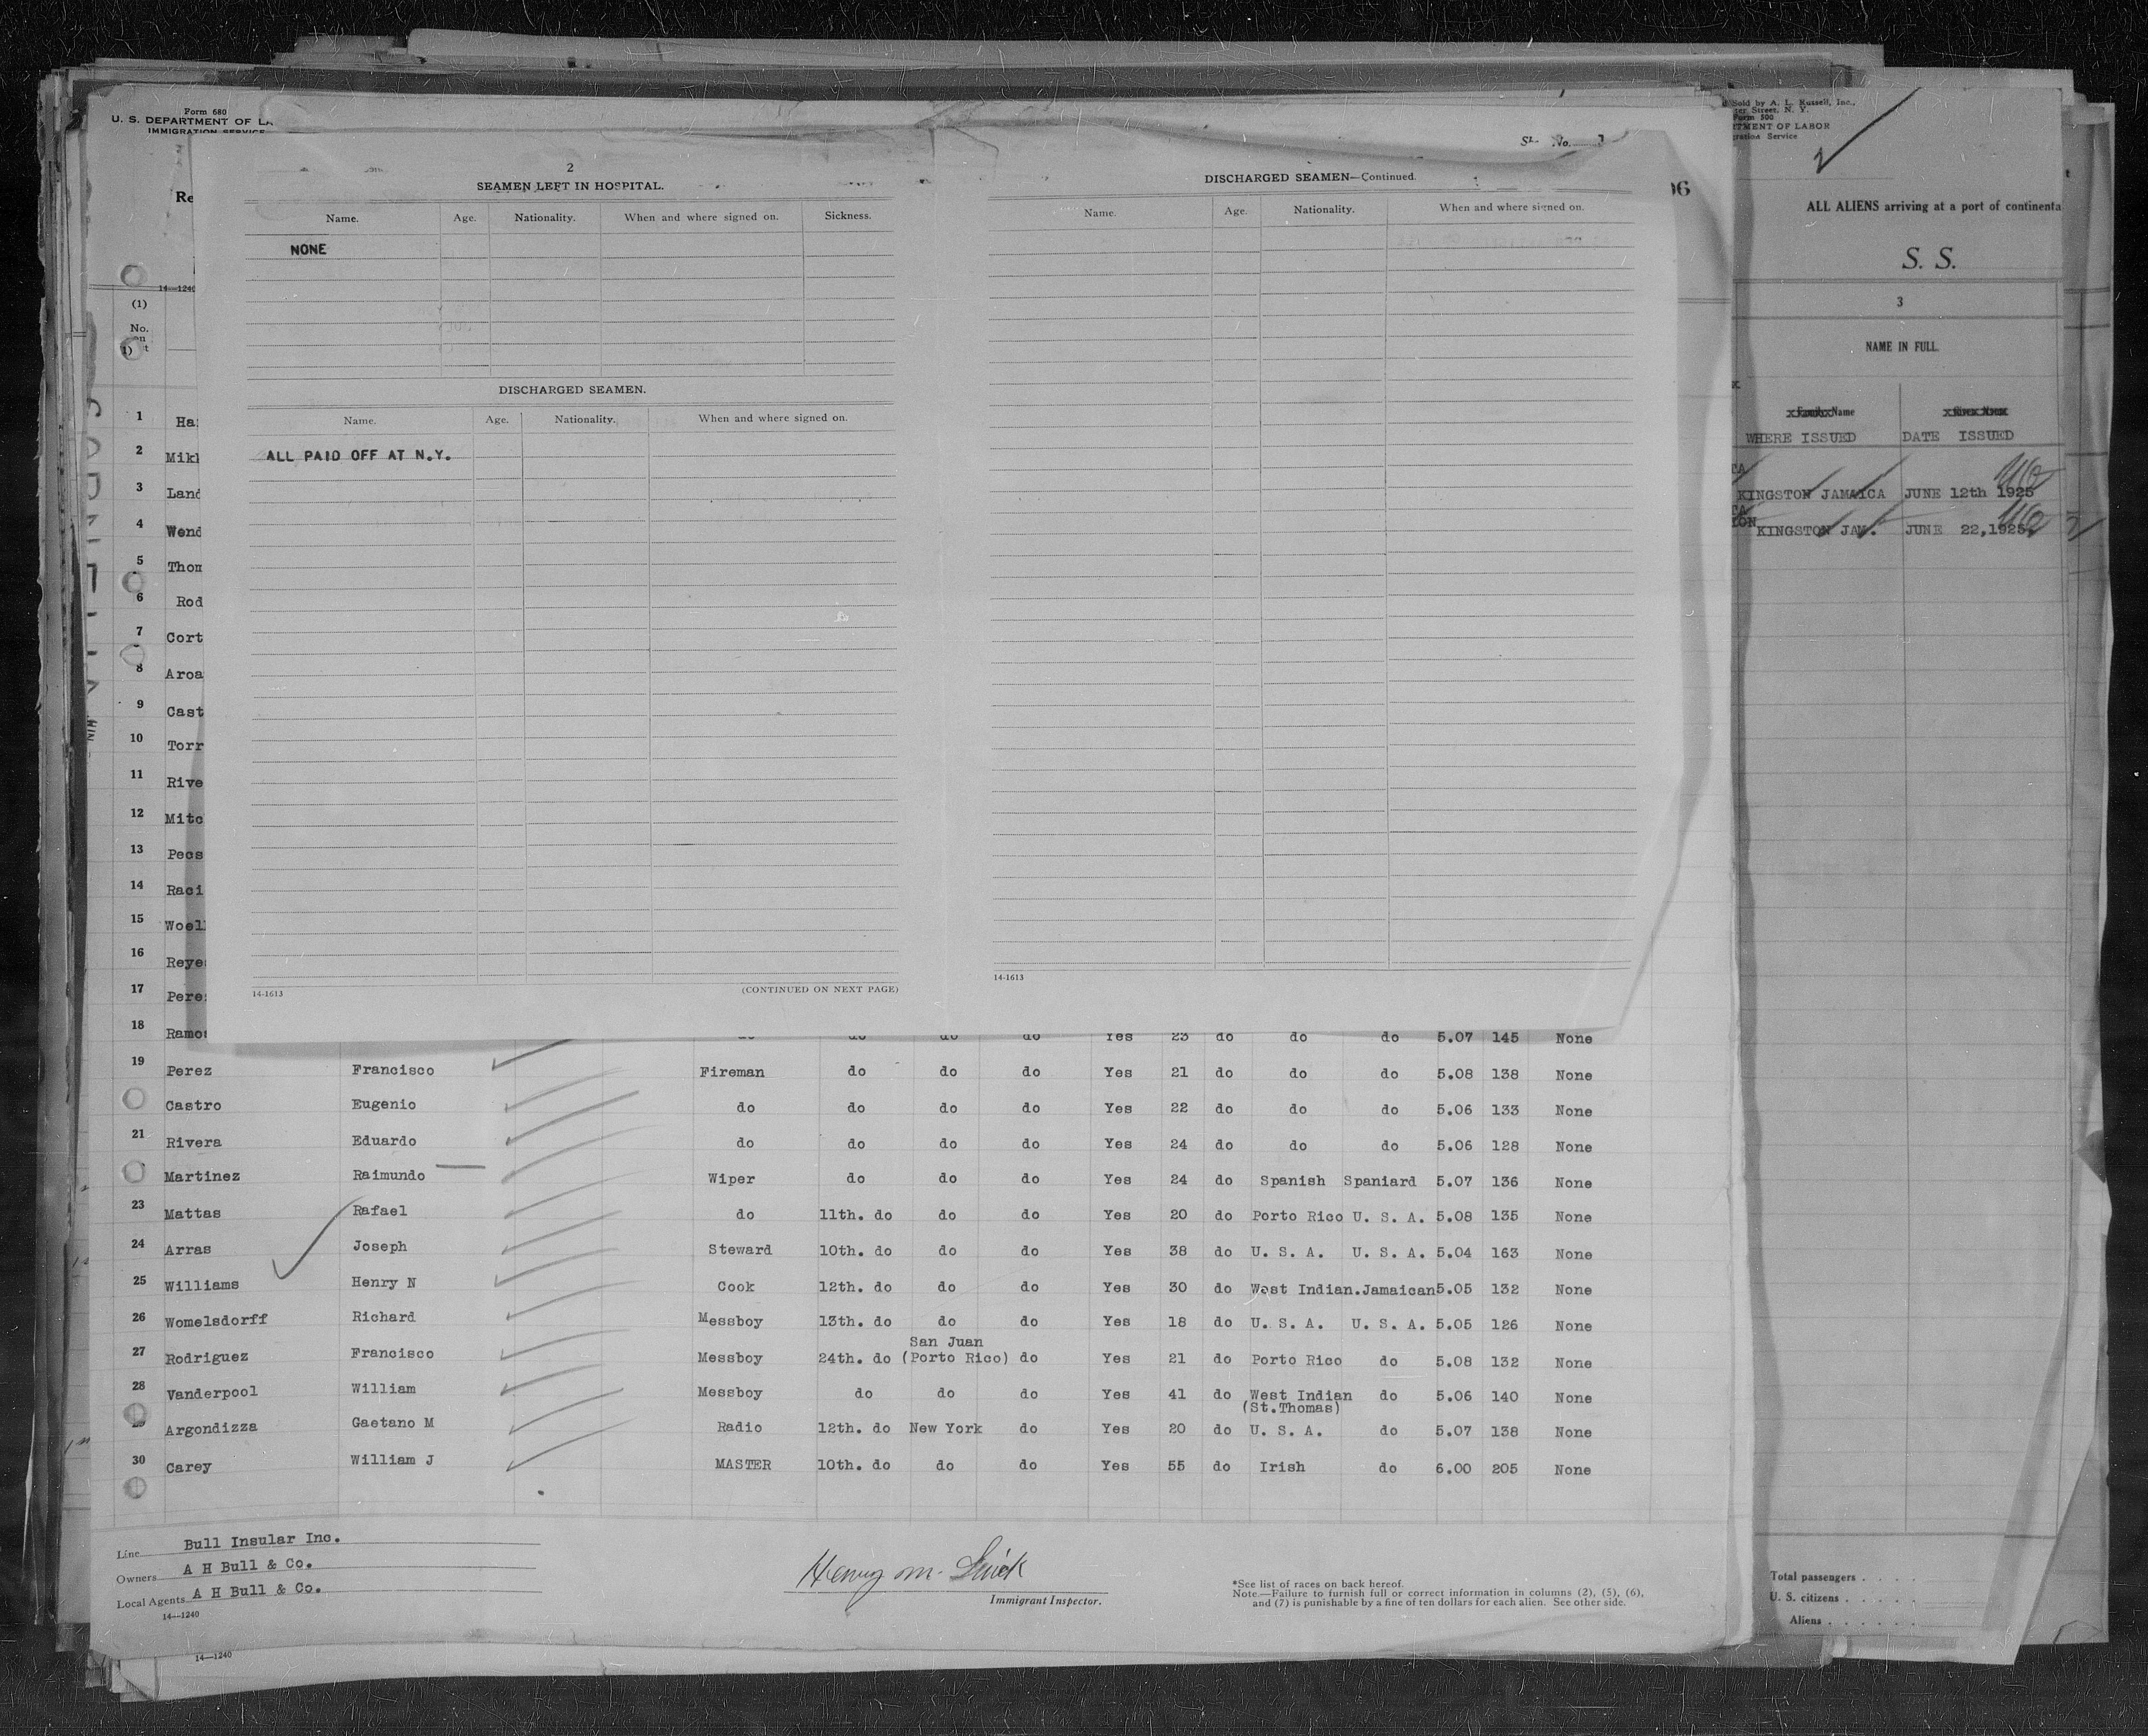 Form 680
U. S. DEPARTMENT OF LA
IMMIGRATION SERVICE
Re
14—1240
(1)
No.
No.
2
SEAMEN LEFT IN HOSPITAL.
Name. Age. Nationality. When and where signed on. Sickness.
NONE
DISCHARGED SEAMEN.
Name. Age. Nationality. When and where signed on.
ALL PAID OFF AT N.Y.
14-1613
(CONTINUED ON NEXT PAGE)
DISCHARGED SEAMEN—Continued.
Name. Age. Nationality. When and where signed on.
14-1613
1 Ha
2 Mik
3 Land
4 Wend
5 Thom
6 Rod
7 Cort
8 Aroa
9 Cast
10 Torr
11 Rive
12 Mitc
13 Pecs
14 Raci
15 Woel
16 Reye
17 Pere
18 Ramo do do do do Yes 23 do do do 5.07 145 None
19 Perez Francisco Fireman do do do Yes 21 do do do 5.08 138 None
Castro Eugenio do do do do Yes 22 do do do 5.06 133 None
21 Rivera Eduardo do do do do Yes 24 do do do 5.06 128 None
Martinez Raimundo Wiper do do do Yes 24 do Spanish Spaniard 5.07 136 None
23 Mattas Rafael do 11th. do do do Yes 20 do Porto Rico U. S. A. 5.08 135 None
24 Arras Joseph Steward 10th. do do do Yes 38 do U. S. A. U. S. A. 5.04 163 None
25 Williams Henry N Cook 12th. do do do Yes 30 do West Indian. Jamaican 5.05 132 None
26 Womelsdorff Richard Messboy 13th. do do do Yes 18 do U. S. A. U. S. A. 5.05 126 None
San Juan
27 Rodriguez Francisco Messboy 24th. do (Porto Rico) do Yes 21 do Porto Rico do 5.08 132 None
28 Vanderpool William Messboy do do do Yes 41 do West Indian do 5.06 140 None
(St.Thomas)
29 Argondizza Gaetano M Radio 12th. do New York do Yes 20 do U. S. A. do 5.07 138 None
30 Carey William J MASTER 10th. do do do Yes 55 do Irish do 6.00 205 None
Line Bull Insular Inc.
Owners A H Bull & Co.
Local Agents A H Bull & Co.
14—1240
Henry M.
Immigrant Inspector.
*See list of races on back hereof.
Note.—Failure to furnish full or correct information in columns (2), (5), (6),
and (7) is punishable by a fine of ten dollars for each alien. See other side.
14—1240
Sold by A. L. Russell, Inc.,
Street, N. Y.
Form 500
TMENT OF LABOR
gration Service
ALL ALIENS arriving at a port of continenta
S. S.
3
NAME IN FULL
Family Name Given Name
WHERE ISSUED DATE ISSUED
KINGSTON JAMAICA JUNE 12th 1925
KINGSTON JAM. JUNE 22,1925.
Total passengers . . . .
U. S. citizens . . . . .
Aliens . . . . . .